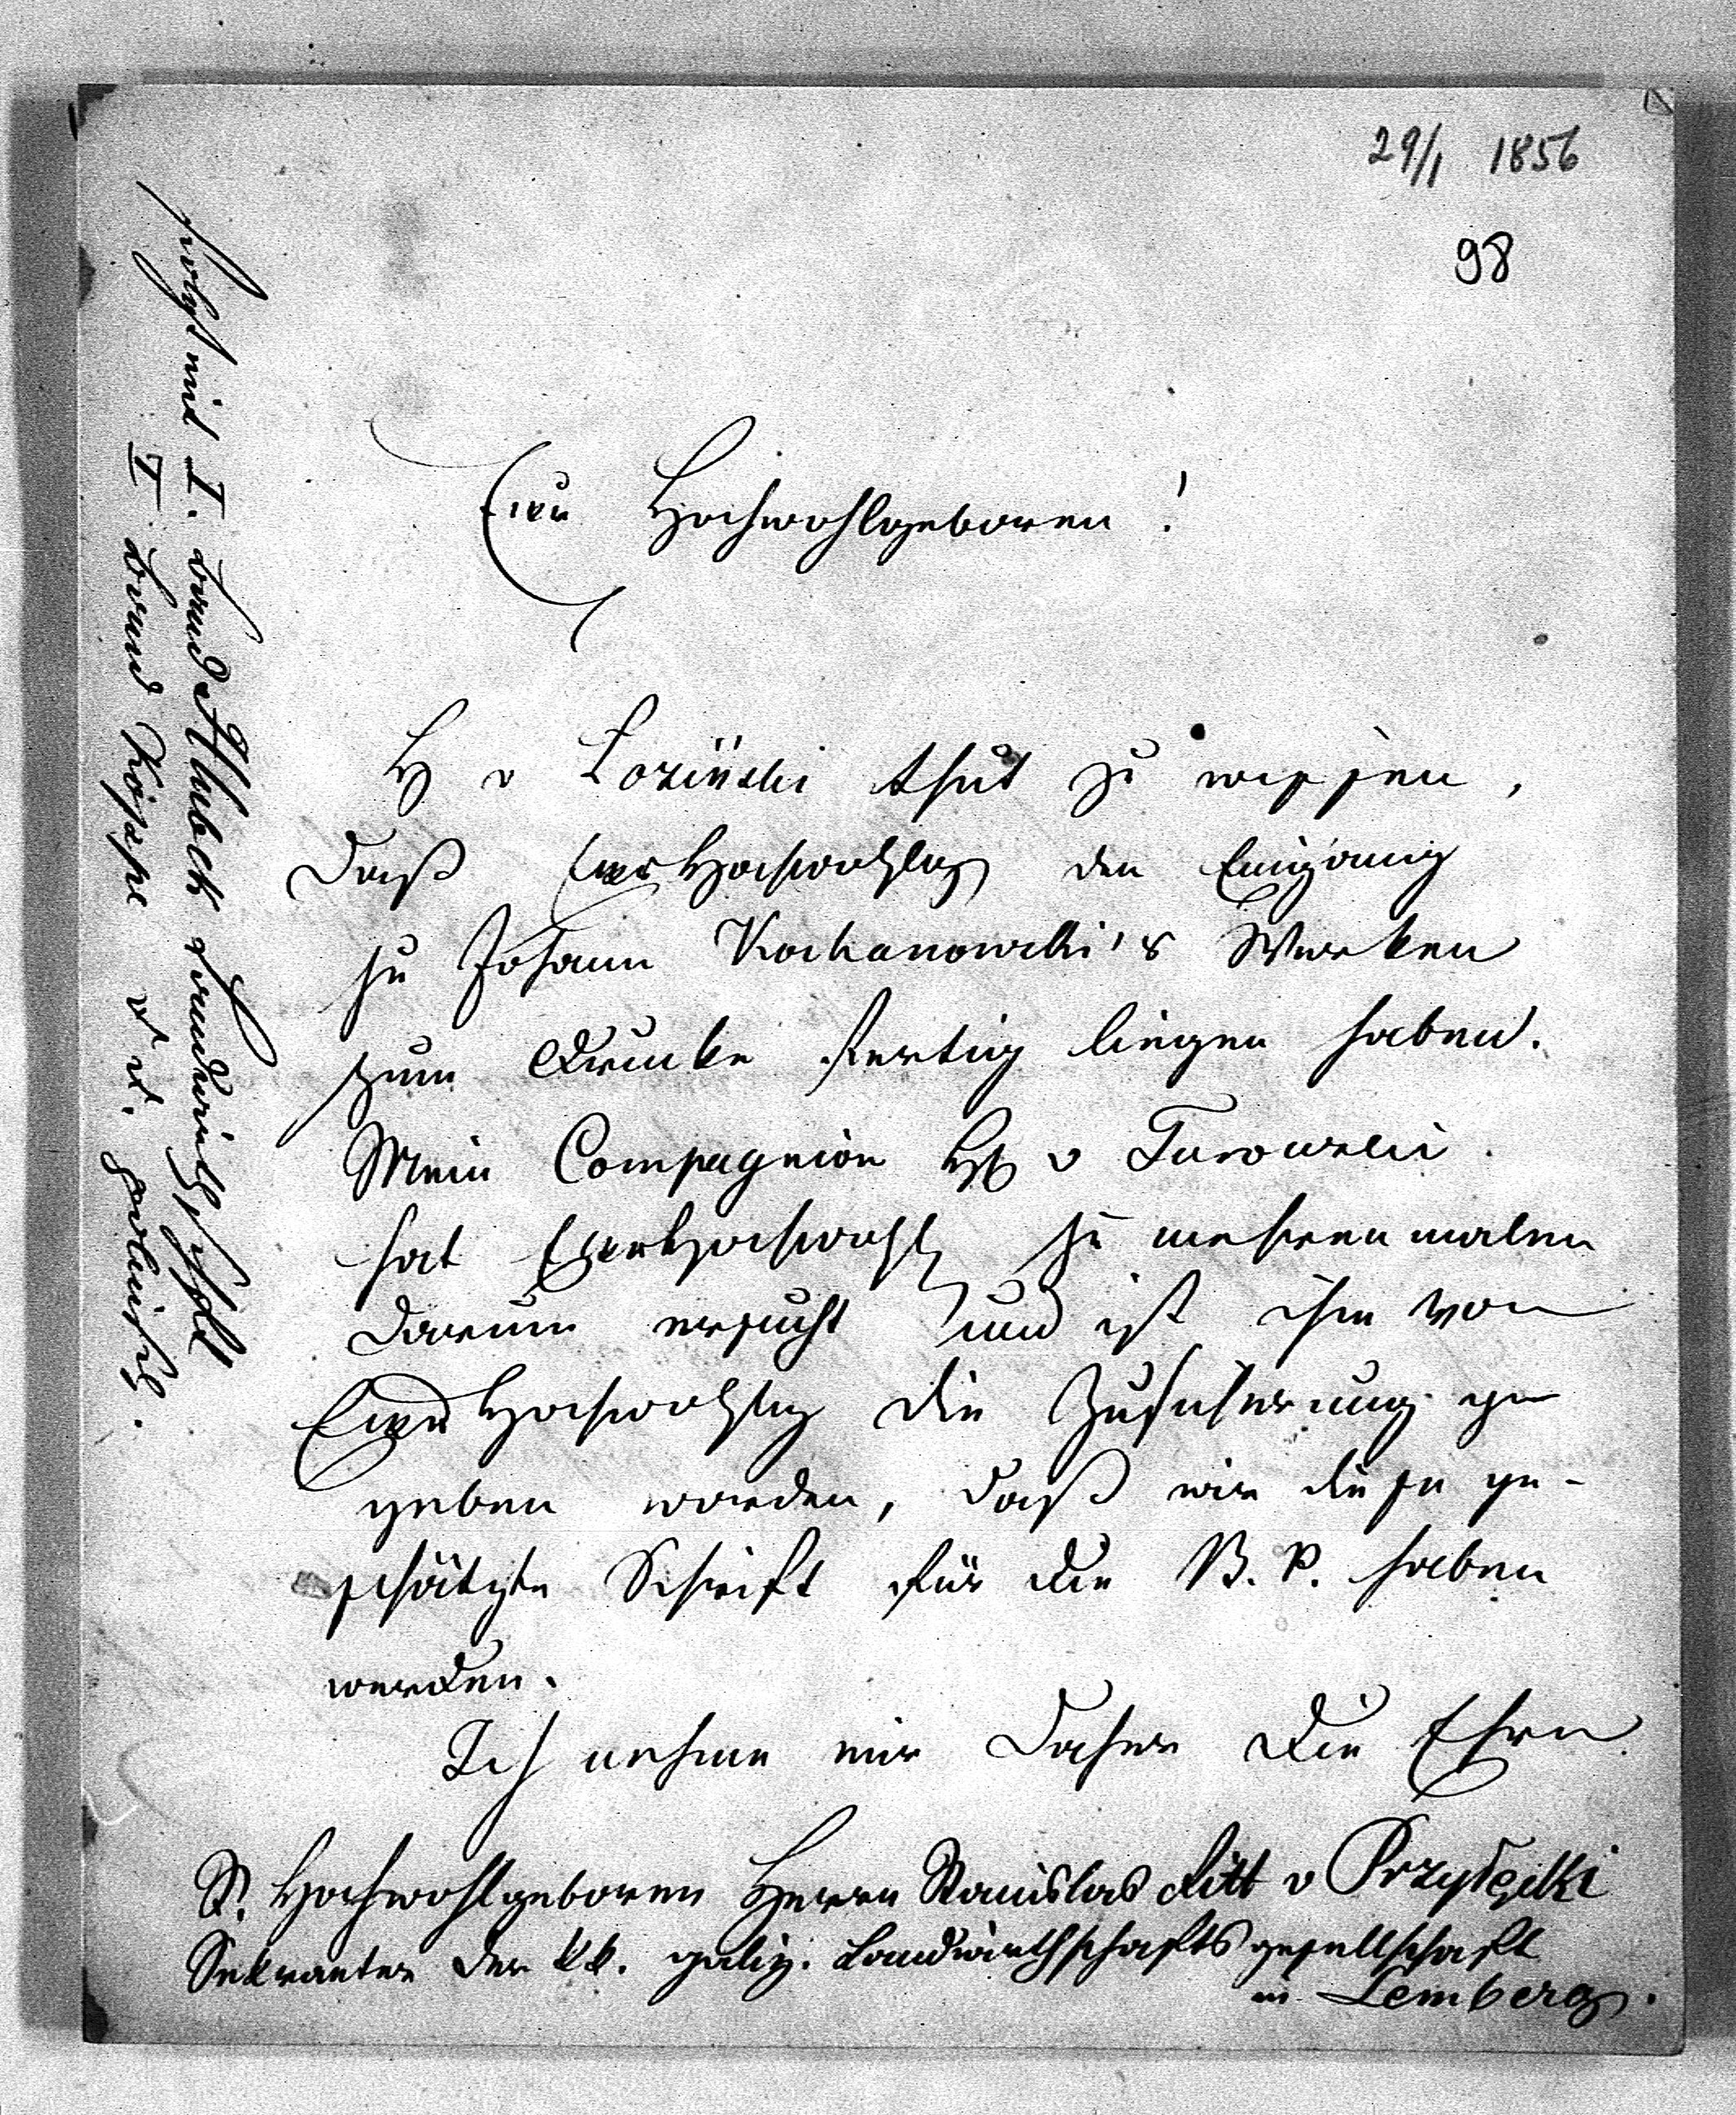 29/1 1856
98
Euer Hochwohlgeboren!
H v Łoziński thut zu wissen,
daß Euer Hochwohlg den Eingang
zu Johann Kochanowski's Werken
zum Drucke fertig liegen haben.
Mein Compagnion H v Turowski
hat Euer Hochwohlg zu mehrenmalen
darum ersucht und ist ihm von
Euer Hochwohlg die Zusicherung ge
geben worden, daß wir diese ge-
schätzte Schrift für die B. P. haben
werden.
Ich nehme mir daher die Ehre
S. Hochwohlgeboren Herrn Stanislas Ritt v Przyłęcki
Sekraeter der kk. galiz. Landwirthschaftsgesellschaft
in Lemberg.
folgt mit I. Band Hlubek Landwirthschaft
I Band